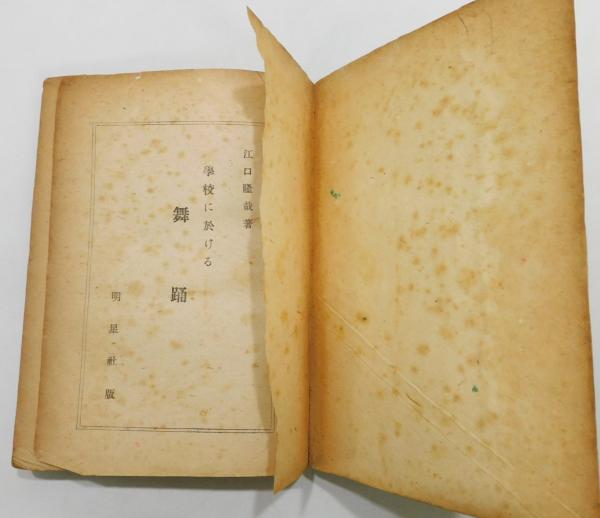 江口隆哉著
學校に於ける
舞踊
明星社版